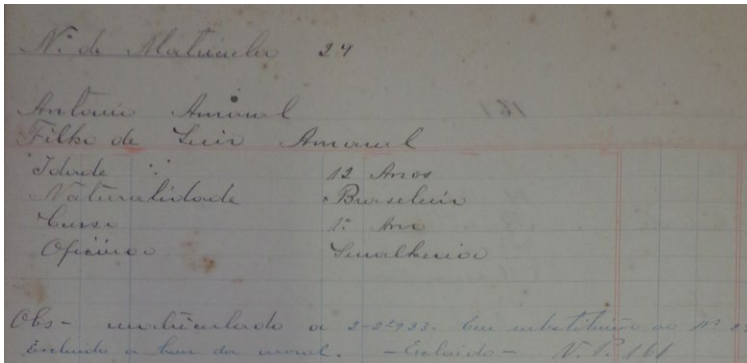 Nº de Matricula 29
Antonio Amaral
Filho de Luiz Amaral
Idade 12 Anos
Naturalidade Brasileira
Curso 1º Ano
Oficina Serralheria
Obs - matriculado a 2-2-933. Em substituição ao Nº
Excluido a bem da moral. - Excluido - N. P. 161